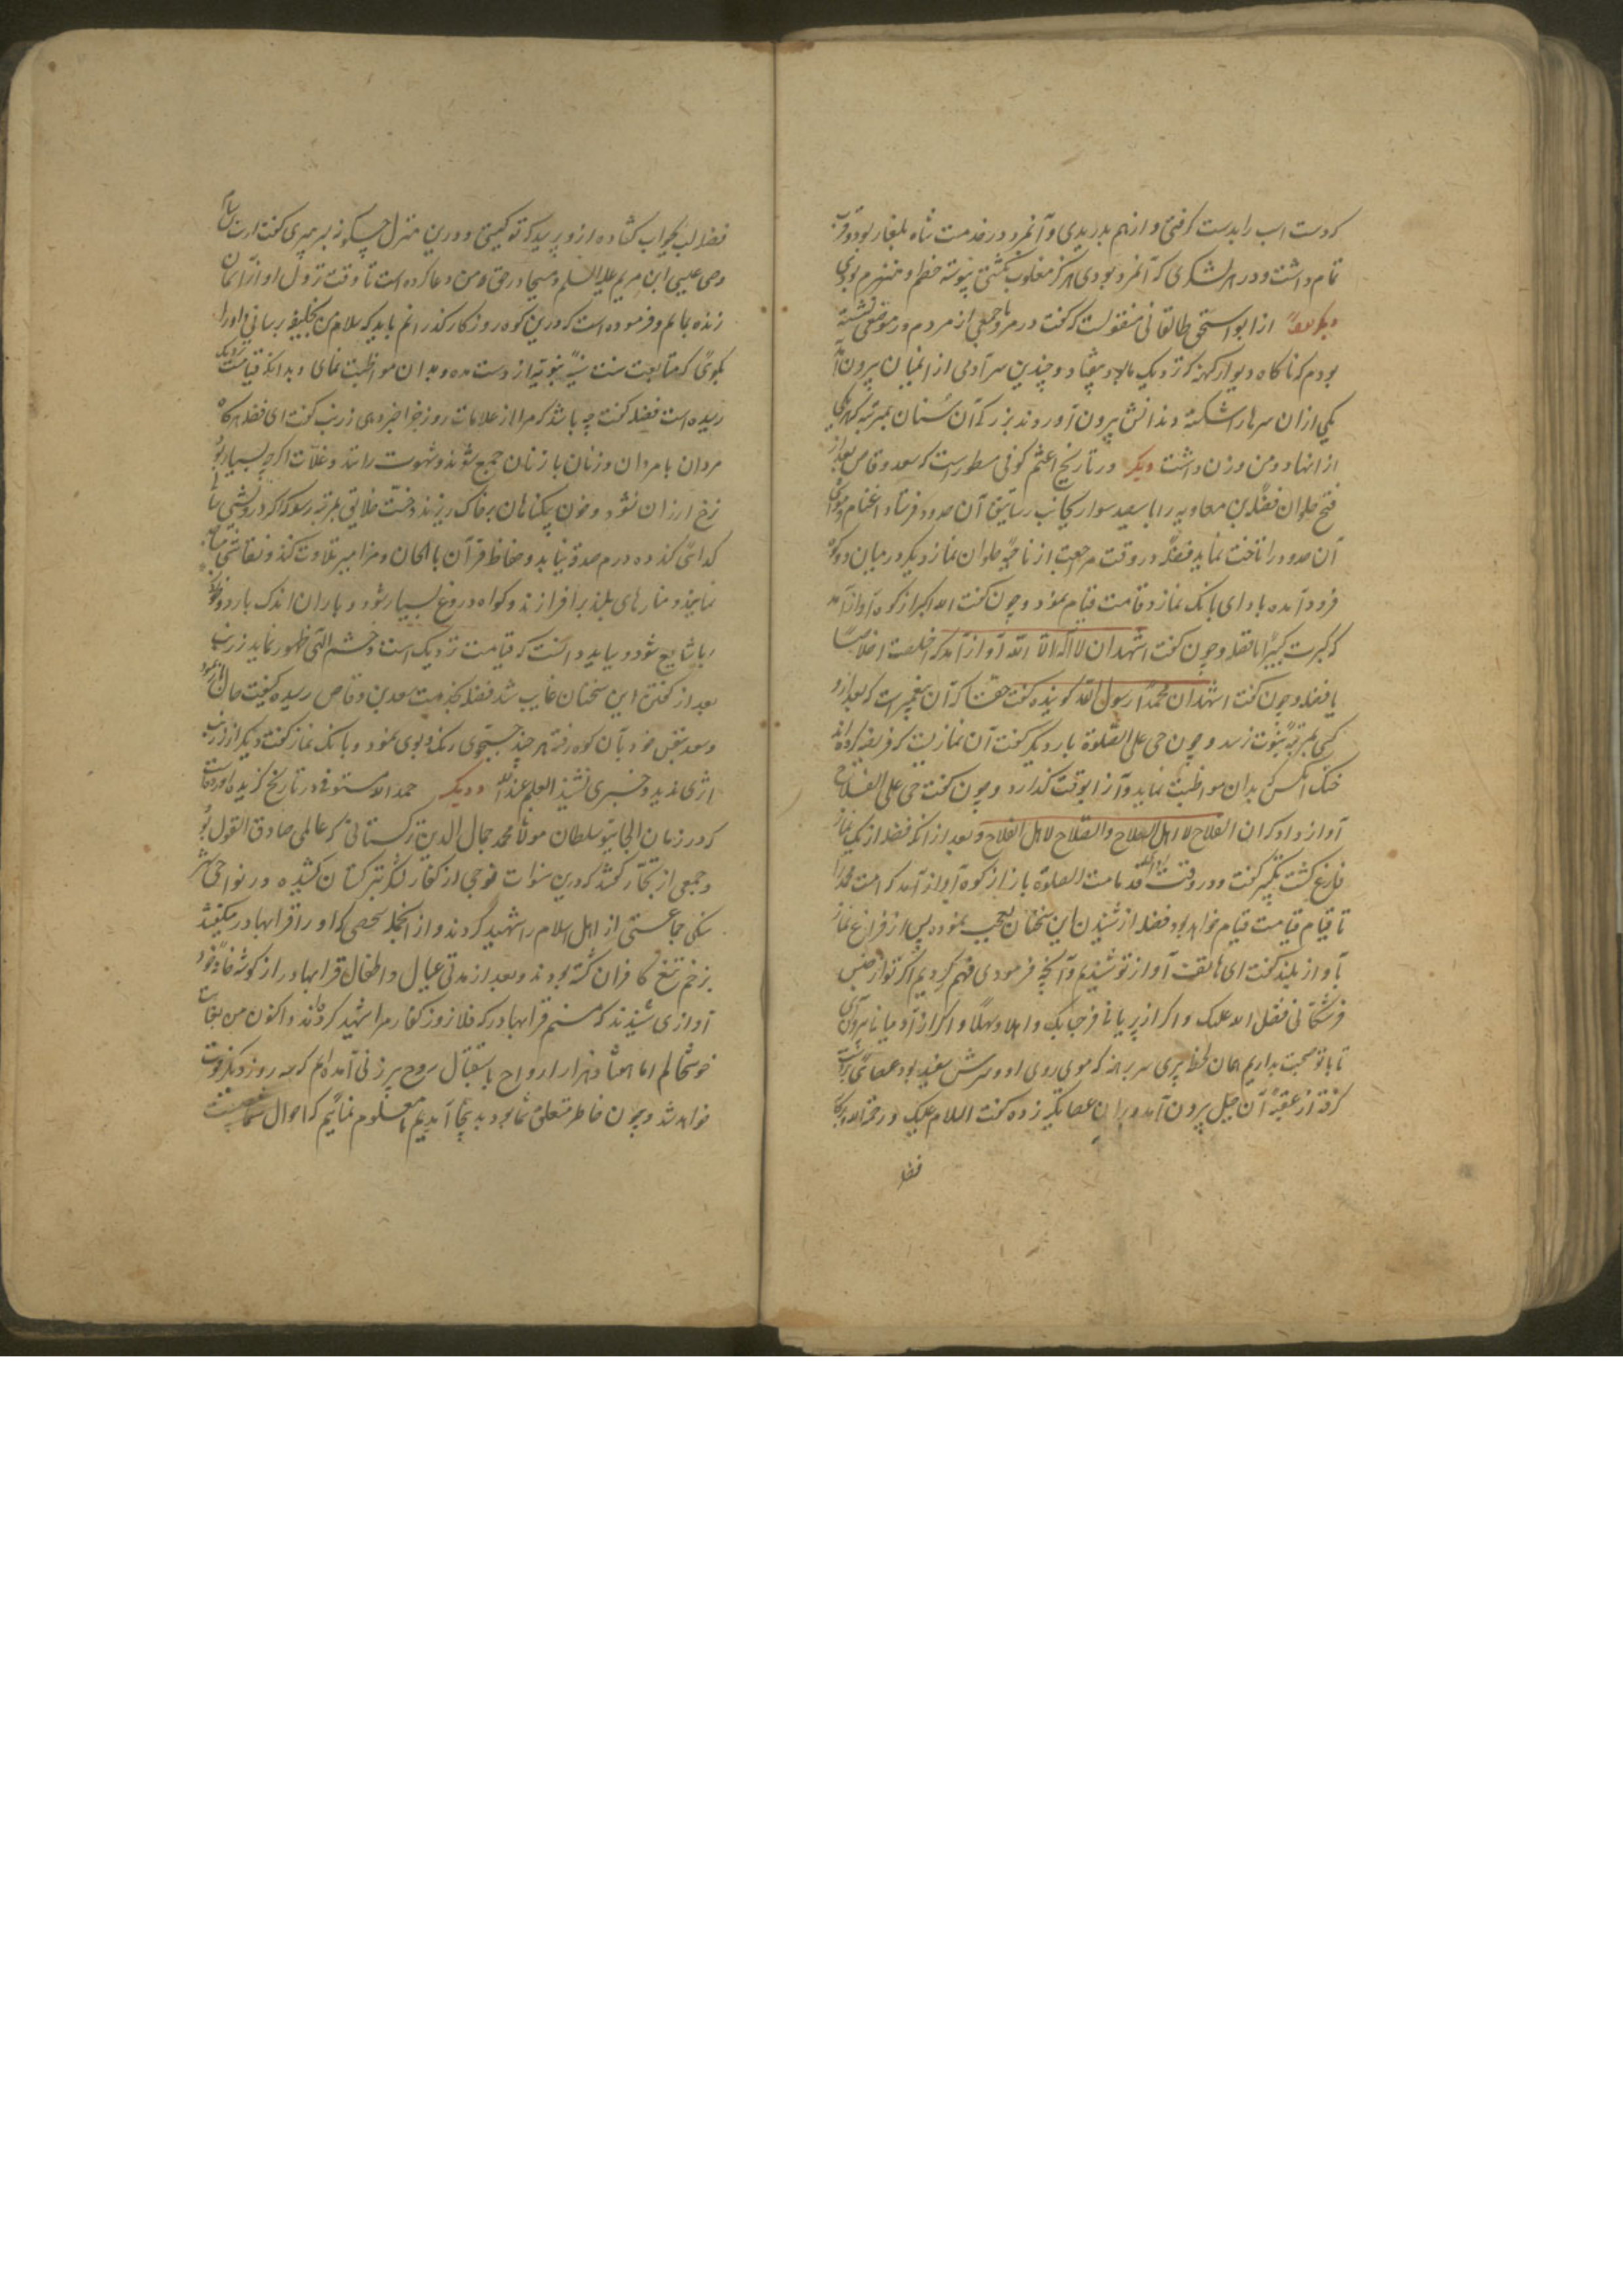 که دست اسب را بدست گرفتی و از هم بدریدی و آنمرد در خدمت شاه بلغار بود و قرب
تمام داشت و در هر لشکری که آنمرد بودی هرگز مغلوب نگشتی پیوسته خصم او منهزم بودی
دیگر از ابو اسحق طالقانی منقولست که گفت در مرو با جمعی از مردم در موضعی نشسته
بودم که ناگاه دیوار کهنه که نزدیک ما بود بیفتاد و چندین سر آدمی از انمیان بیرون آمد
یکی از ان سرها شکسته دندانش بیرون آوردند بزرگ آن سنان بمرتبه که هر یکی
از انها دو من وزن داشت دیگر در تاریخ اعثم کوفی مسطور است که سعد وقاص بعد از
فتح حلوان فضلة بن معاویه را با سیصد سوار بجانب رساتیق آن حدود فرستاد تا غنایم و مواشی
آن حدود را تاخت نماید فضله در وقت مراجعت از ناحیۀ حلوان نماز دیگر در میان دو کوه
فرود آمده بادای بانک نماز و قامت قیام نمود و چون گفت الله اکبر از کوه آواز آمد
که کبرت کبیرا یا فضله و چون گفت اشهد ان لا اله الا الله آواز آمد که اخلصت اخلاصا
یا فضله و چون گفت اشهد ان محمدا رسول الله گوینده گفت حقا که آن پیغمبریست که بعد از و
کسی بمرتبۀ نبوت نرسد و چون حی علی الصلوة بار دیگر گفت آن نمازیست که فریضه کرده اند
خنک آنکس که بدان مواظبت نماید و آنرا بوقت گذارد و چون گفت حی علی الفلاح
آواز داد که ان الفلاح لاهل الصلاح والصلاح لاهل الفلاح و بعد از انکه فضله از بانک نماز
فارغ گشت تکبیر گفت و در وقت ادای قد قامت الصلوة باز از کوه آواز آمد که امت محمد را
تا قیام قیامت قیام خواهد بود فضله از شنیدن این سخنان تعجب نموده پس از فراغ نماز
بآواز بلند گفت ای هاتف آواز تو شنیدیم و آنچه فرمودی فهم کردیم اگر تو از جنس
فرشتگانی فضل الله علیک و اگر از پریانی فمرحبا بک و اهلا و سهلا و اگر از آدمیانی بیرون آی
تا با تو صحبت بداریم همان لحظه پیری سر برهنه که موی روی او و سرش سفید بود عصائی بدست
گرفته از عقبۀ آن جبل بیرون آمد و بران عصا تکیه زده گفت السلام علیک و رحمة الله و برکاته
فضله
فضله لب بجواب گشاده از و پرسید که تو کیستی و درین منزل چگونه بسر میبری گفت زرنب
وصی عیسی ابن مریم علیه السلم و مسیحا در حق من دعا کرده است تا وقت نزول او از آسمان
زنده بمانم و فرموده است که درین کوه روزگار گذرانم باید که سلام من بخلیفه رسانی و او را
بگوئی که متابعت سنت سنیۀ نبویه از دست مده و بدان مواظبت نمای و بدانکه قیامت نزدیک
رسیده است فضله گفت چه باشد که مرا از علامات روز جزا خبر دهی زرنب گفت ای فضله هرگاه
مردان با مردان و زنان با زنان جمع شوند و شهوت رانند و غلات اگرچه بسیار بود
نرخ ارزان نشود و خون بیگناهان بر خاک ریزند و خست خلایق بمرتبه رسد که اگر درویشی
گدائی کند ده درم صدقه نیابد و حفاظ قرآن بالحان و مزامیر تلاوت کنند و نقاشی مساجد
نمایند و منارهای بلند برافرازند و گواه دروغ بسیار شود و باران اندک بارد و
ربا شایع شود و بباید دانست که قیامت نزدیک است و خشم الهی ظهور نماید زرنب
بعد از گفتن این سخنان غایب شد فضله بخدمت سعد بن وقاص رسیده کیفیت حال
و سعد بنفس خود بآن کوه رفته هر چند جستجوی و تک و پوی نمود و بانک نماز گفت دیگر از زرنب
اثری ندید و خبری نشنید العلم عند الله و دیگر حمد الله مستوفی در تاریخ گزیده آورده است
که در زمان الجایتو سلطان مولانا محمد جمال الدین ترکستانی که عالمی صادق القول بود
و جمعی از تجار گفتند که درین سنوات فوجی از کفار لشکر بترکستان کشیده در نواحی شهر
جماعتی از اهل اسلام را شهید کردند و از انجمله شخصی که او را قرا بهادر میگفتند
بزخم تیغ کافران کشته بودند و بعد از مدتی عیال و اطفال قرا بهادر از گوشه خانه خود
آوازی شنیدند که منم قرا بهادر که فلان روز کفار مرا شهید کرده اند و اکنون من بغایت
خوشحالم اما هشتاد هزار ارواح باستقبال روح پیرزنی آمده ام که سه روز دیگر فوت
خواهد شد و چون خاطر متعلق شما بود بدینجا آمدیم تا معلوم نمائیم که احوال شما چیست